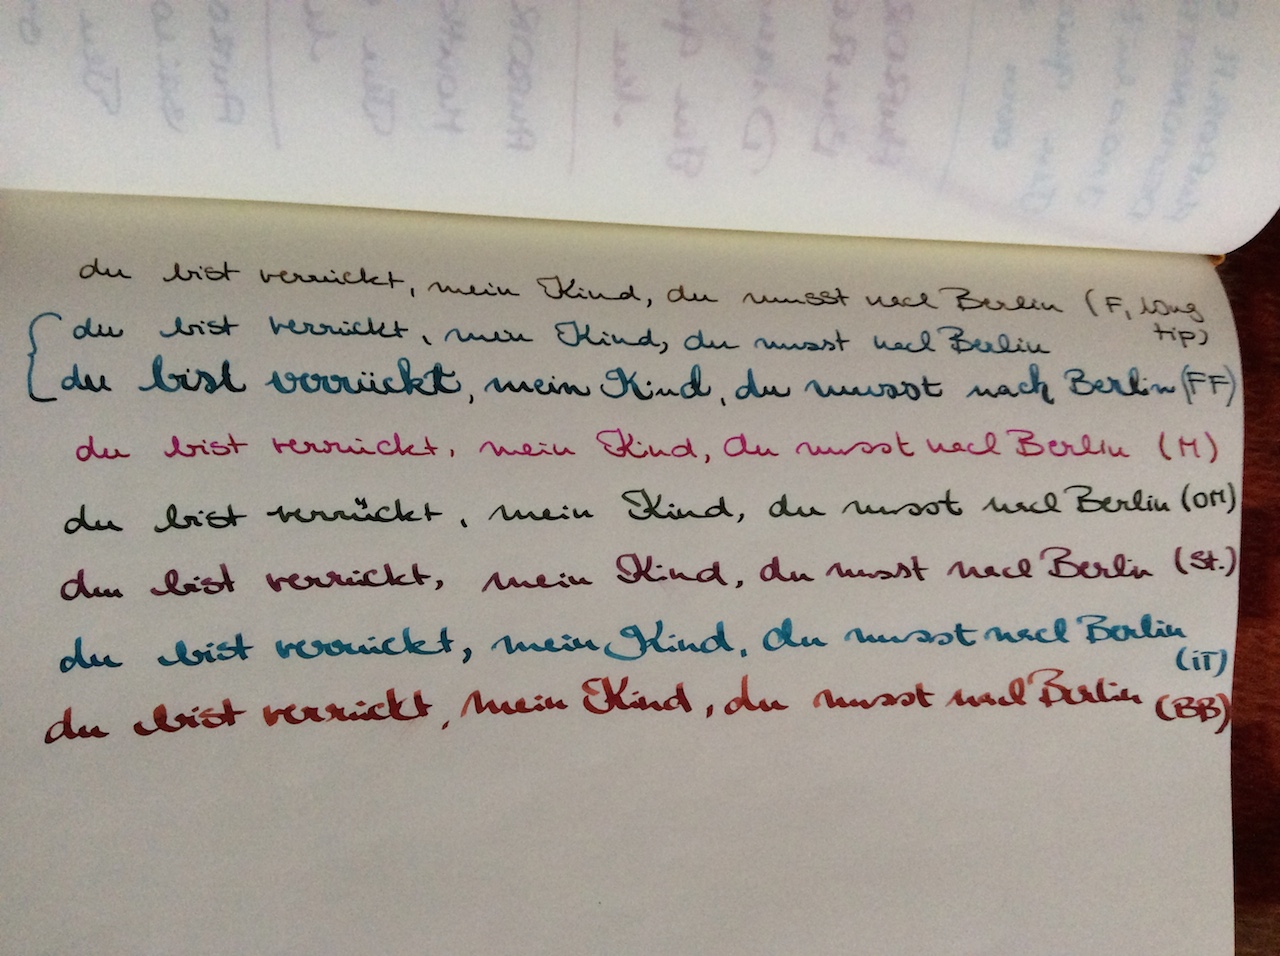 du bist verrückt, mein Kind, du musst nach Berlin (F, long
tip)
du bist verrückt, mein Kind, du musst nach Berlin
du bist verrückt, mein Kind, du musst nach Berlin (FF)
du bist verrückt, mein Kind, du musst nach Berlin (M)
du bist verrückt, mein Kind, du musst nach Berlin (OM)
du bist verrückt, mein Kind, du musst nach Berlin (St.)
du bist verrückt, mein Kind, du musst nach Berlin
(iT)
du bist verrückt, mein Kind, du musst nach Berlin (BB)